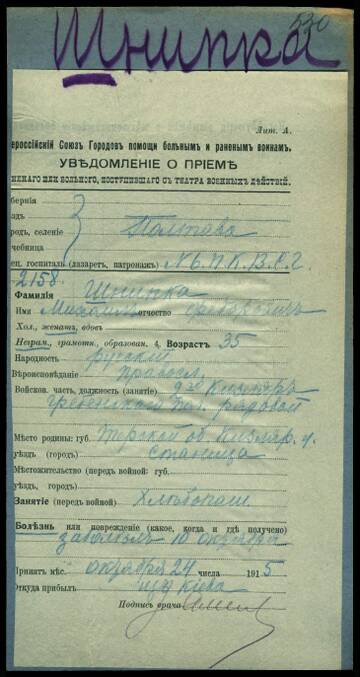 530
Шнипка
Лит. А.
ероссійскій Союзъ Городовъ помощи больнымъ и раненымъ воинамъ.
УВѢДОМЛЕНІЕ О ПРІЕМѢ
НЕНАГО ИЛИ БОЛЬНОГО, ПОСТУПИВШАГО СЪ ТЕАТРА ВОЕННЫХЪ ДѢЙСТВІЙ.
бернія
здъ
родъ, селеніе Полтава
чебница
ец. госпиталь (лазаретъ, патронажъ) № 6. П. К. В. С. Г.
2158
Фамилія Шнипка
Имя Михаилъ отчество Федоровичъ
Хол., женатъ, вдовъ
Неграм., грамотн., образован. 4, Возрастъ 35
Народность русскій
Вѣроисповѣданіе Правосл.
Войсков. часть, должность (занятіе)
Гребенскаго рядовой
Мѣсто родины: губ. Терской об. Кизляр.
уѣздъ (городъ) станица
Мѣстожительство (передъ войной: губ.
уѣздъ, городъ)
Занятіе (передъ войной) Хлѣбопаш.
Болѣзнь или поврежденіе (какое, когда и гдѣ получено)
заболѣлъ 10 октября
Принятъ мѣс. октября 24 числа 1915
Откуда прибылъ изъ Кіева
Подпись врача